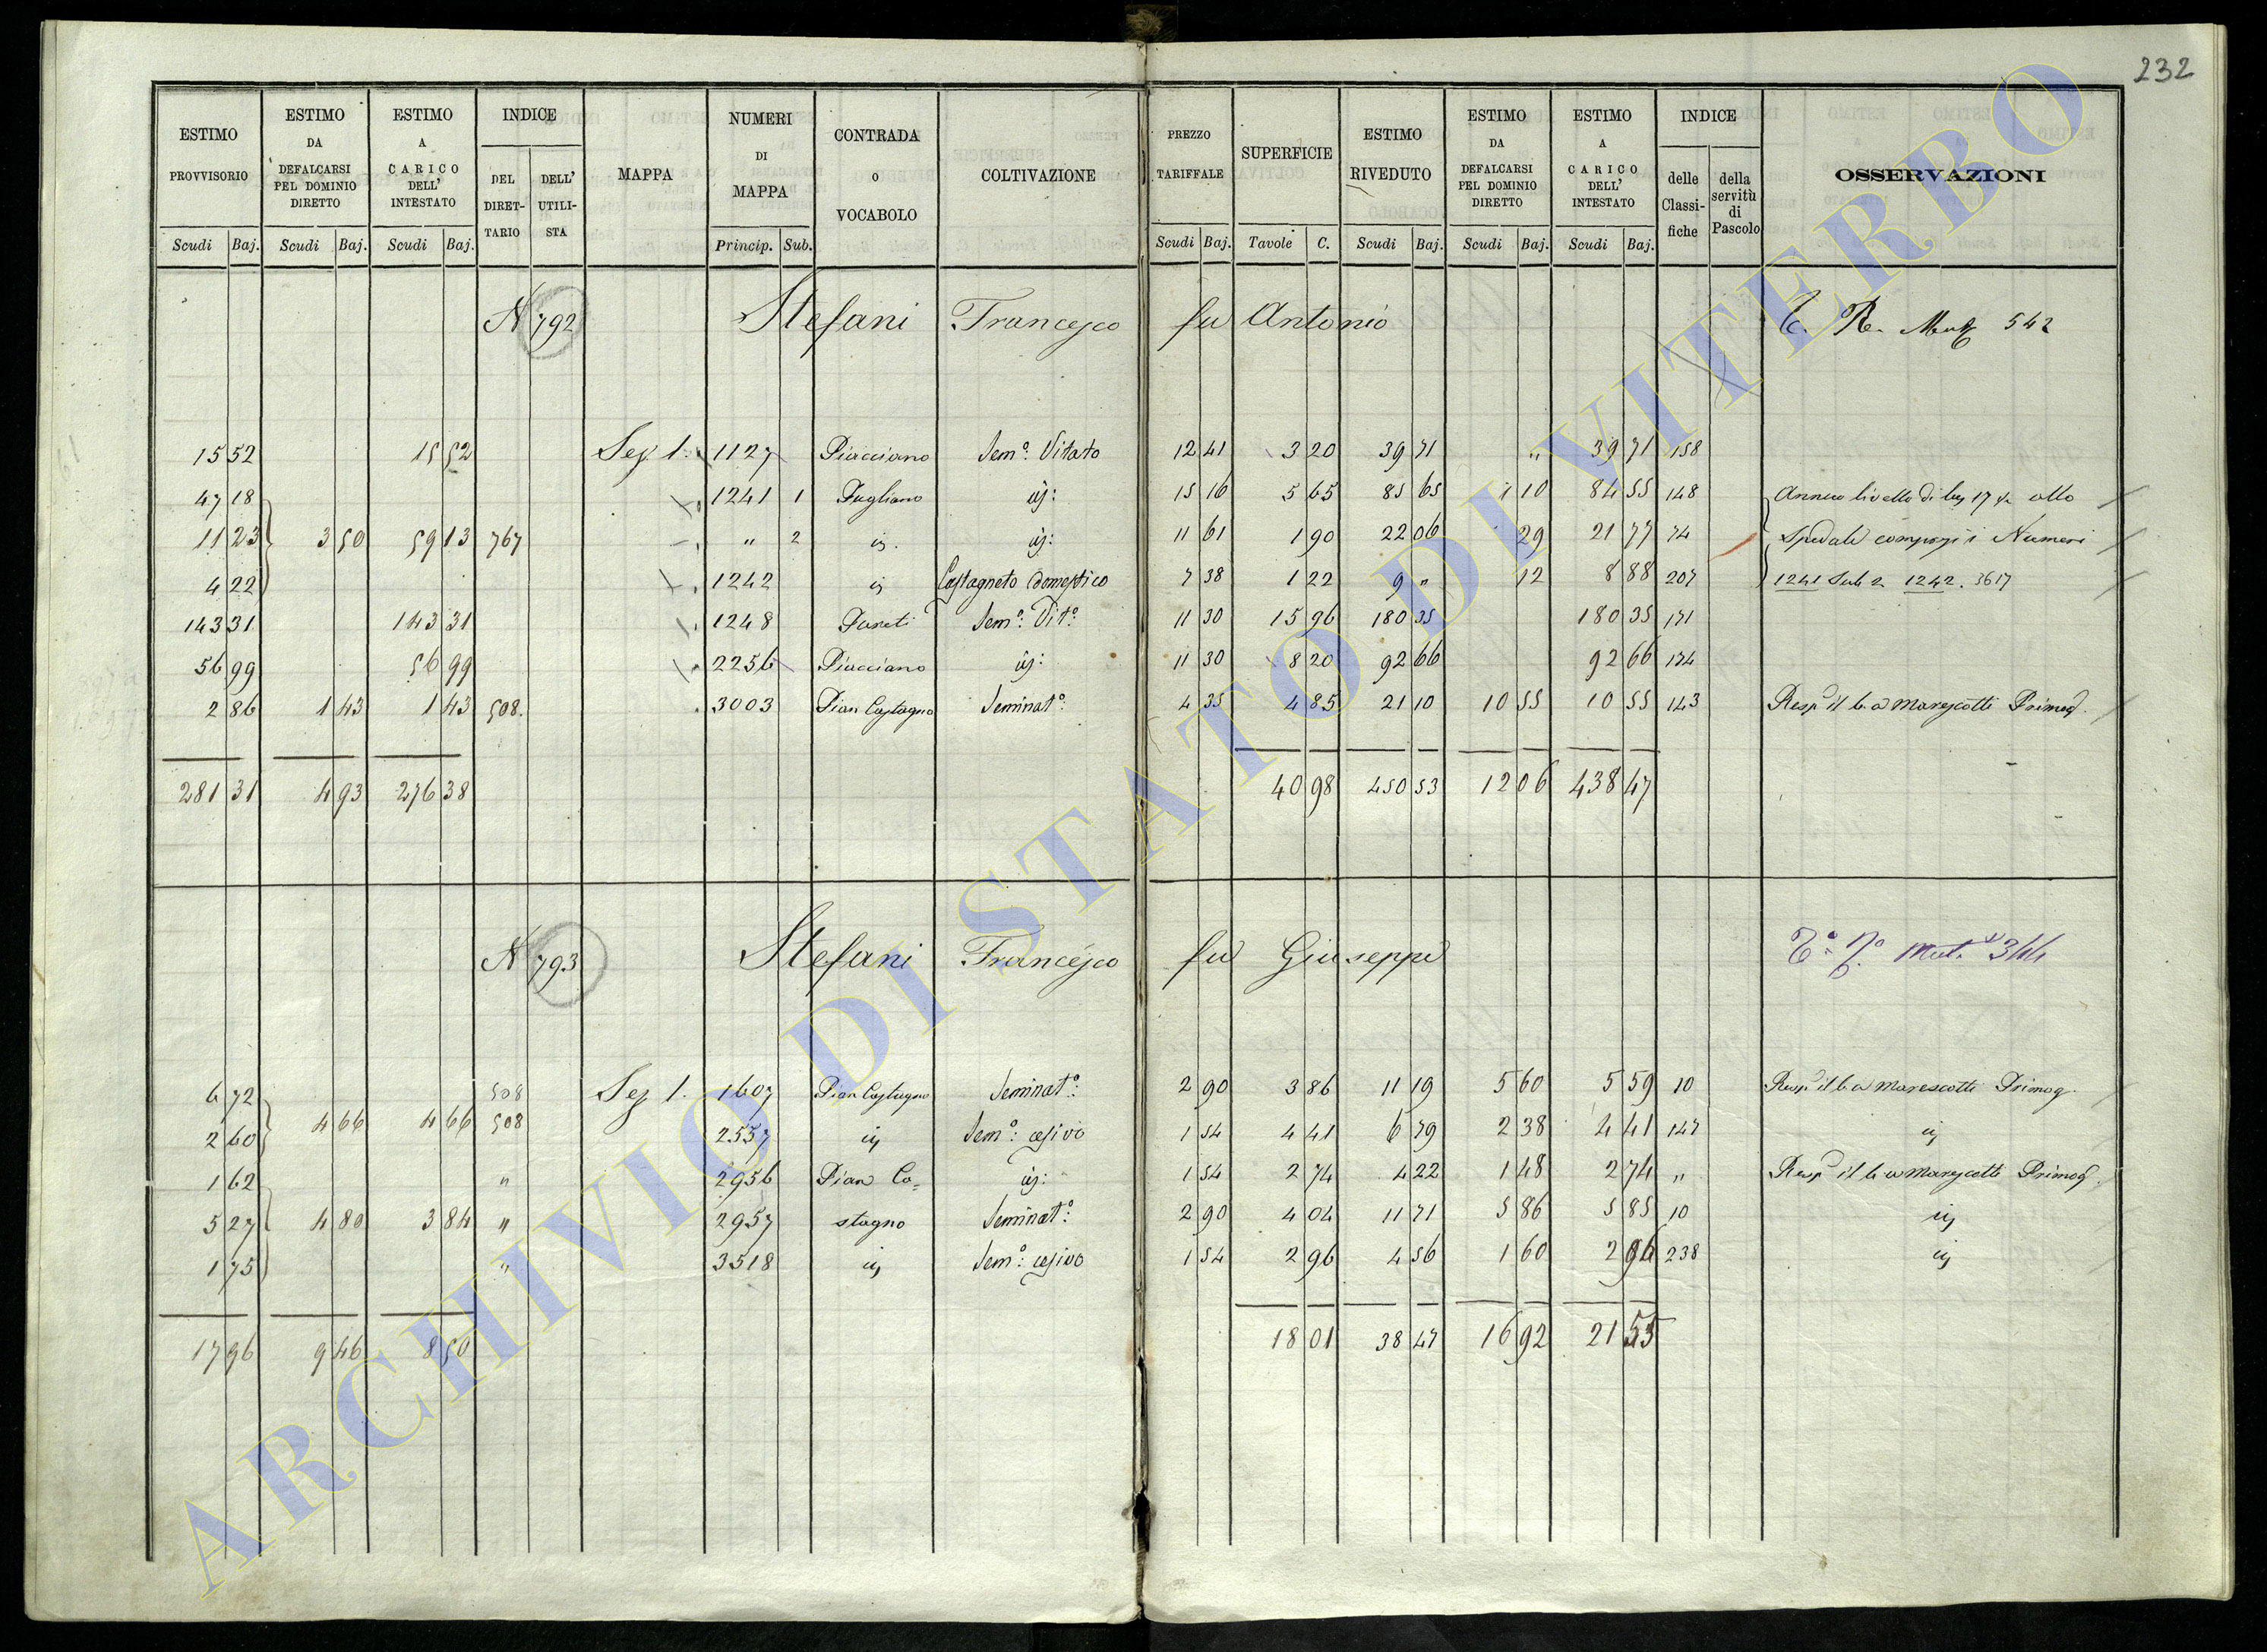 232
ESTIMO PROVVISORIO | ESTIMO DA DEFALCARSI PEL DOMINIO DIRETTO | ESTIMO A CARICO DELL' INTESTATO | INDICE DEL DIRETTARIO | DELL' UTILISTA | MAPPA | NUMERI DI MAPPA | CONTRADA O VOCABOLO | COLTIVAZIONE | PREZZO TARIFFALE | SUPERFICIE | ESTIMO RIVEDUTO | ESTIMO DA DEFALCARSI PEL DOMINIO DIRETTO | ESTIMO A CARICO DELL' INTESTATO | INDICE delle Classifiche | della servitù di Pascolo | OSSERVAZIONI
Scudi Baj. | Scudi Baj. | Scudi Baj. | Princip. Sub. | Scudi Baj. | Tavole C. | Scudi Baj. | Scudi Baj. | Scudi Baj.
N 792 Stefani Francesco fu Antonio 542
15 52 | 15 52 | Sez. 1. | 1127 | Piacciano | Sem.o Vitato | 12 41 | 3 20 | 39 71 | " | 39 71 | 158
47 18 | 1241 | 1 | Fugliano | id: | 15 16 | 5 65 | 85 65 | 1 10 | 84 55 | 148 | Annuo livello di 17 allo
11 23 | 3 50 | 59 13 | 767 | " | 2 | id. | id: | 11 61 | 1 90 | 22 06 | 29 | 21 77 | 74 | Spedale compresi i Numeri
4 22 | 1242 | id | Castagneto domestico | 7 38 | 1 22 | 9 " | 12 | 8 88 | 207 | 1241 Sub 2 1242. 3617
143 31 | 143 31 | 1248 | Sem.o Vit.o | 11 30 | 15 96 | 180 35 | 180 35 | 171
56 99 | 56 99 | 2256 | Piacciano | id: | 11 30 | 8 20 | 92 66 | 92 66 | 174
2 86 | 1 43 | 1 43 | 508. | 3003 | Pian Castagno | Seminat.o | 4 35 | 4 85 | 21 10 | 10 55 | 10 55 | 143 | Marescotti Primog.
281 31 | 4 93 | 276 38 | 40 98 | 450 53 | 12 06 | 438 47
N 793 Stefani Francesco fu Giuseppe 344
6 72 | 508 | Sez 1. | 1607 | Pian Castagno | Seminat.o | 2 90 | 3 86 | 11 19 | 5 60 | 5 59 | 10 | Marescotti Primog.
2 60 | 4 66 | 4 66 | 508 | 2557 | id | Sem.o cesivo | 1 54 | 4 41 | 6 79 | 2 38 | 4 41 | 147 | id
1 62 | " | 2956 | Pian Ca= | id: | 1 54 | 2 74 | 4 22 | 1 48 | 2 74 | " | Marescotti Primog.
5 27 | 4 80 | 3 84 | " | 2957 | stagno | Seminat.o | 2 90 | 4 04 | 11 71 | 5 86 | 5 85 | 10 | id
1 75 | " | 3518 | id | Sem.o cesivo | 1 54 | 2 96 | 4 56 | 1 60 | 2 96 | 238 | id
17 96 | 9 46 | 8 50 | 18 01 | 38 47 | 16 92 | 21 55
ARCHIVIO DI STATO DI VITERBO